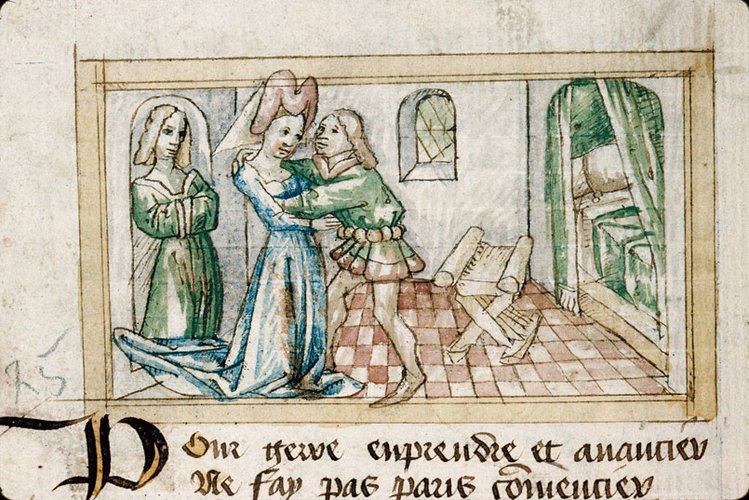 75
Pour gerre enprendre et auancier
Ne fay pas paris cōmencier